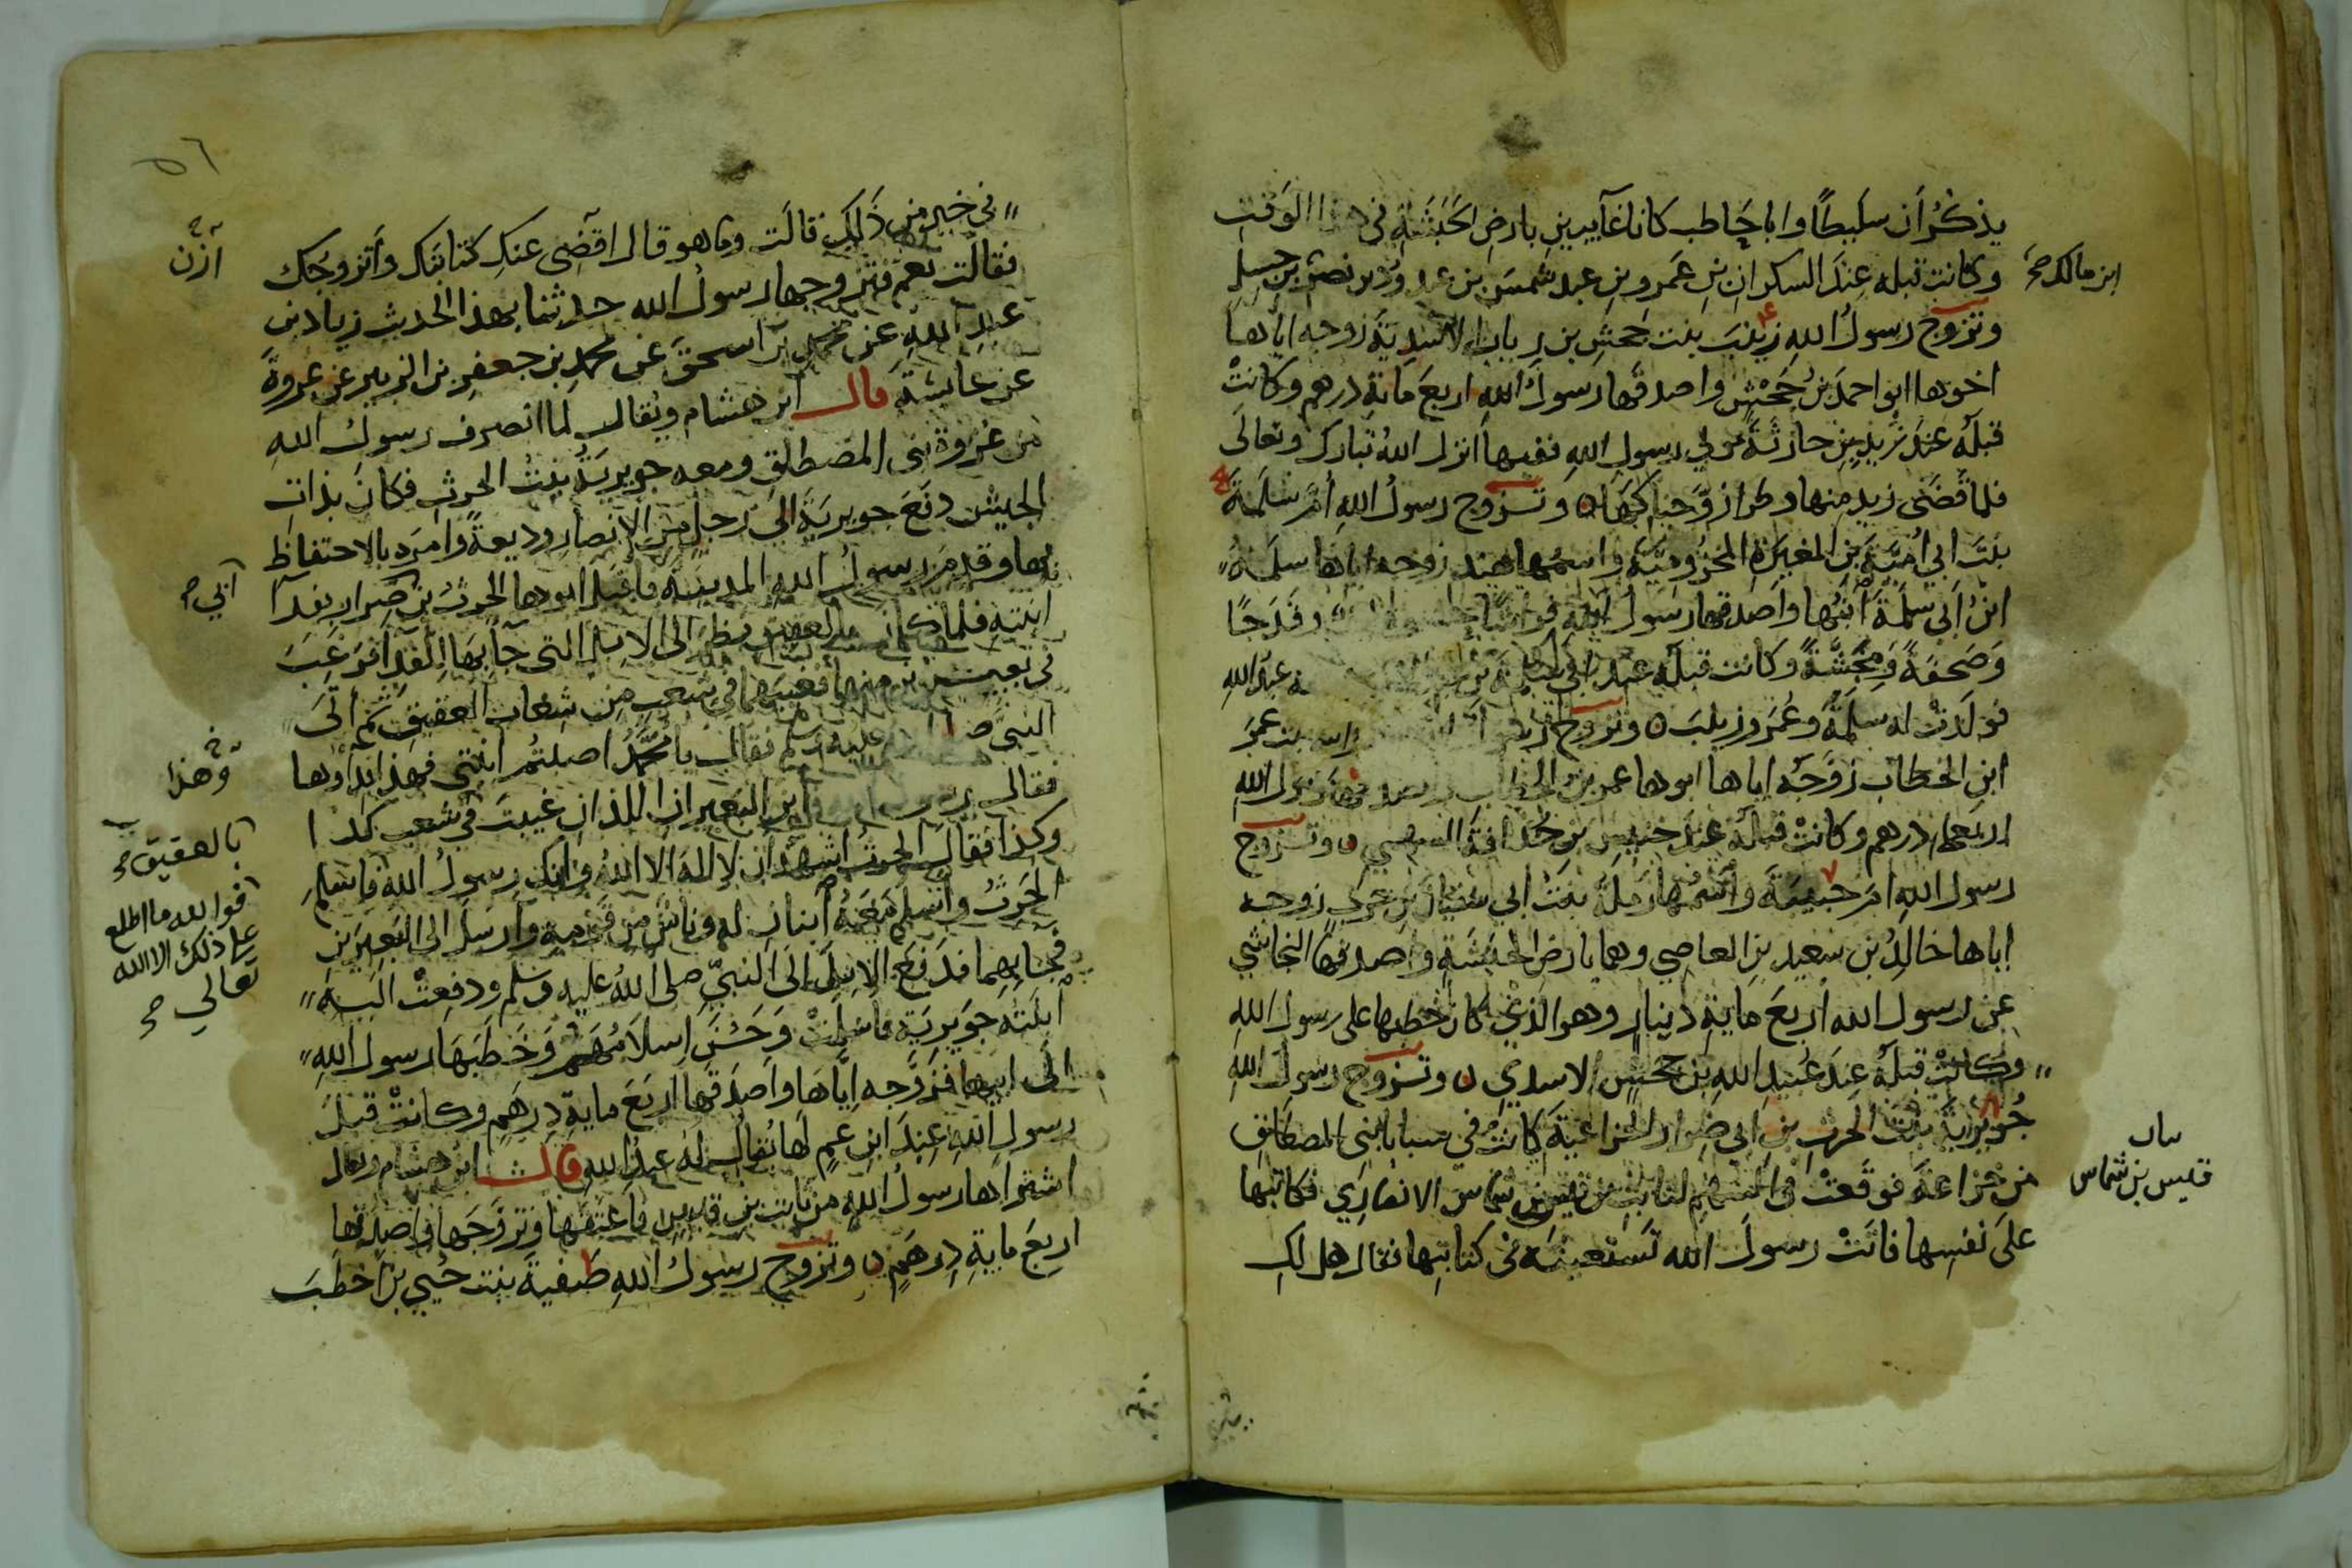 يذكُر أن سليطًا وابا حاطب كانا غايبين بارض الحبشة في هذا الوقت
وكانت قبله عند السكران بن عمرو بن عبد شمس بن عبد ود بن نصر بن حسل
ابن مالك صح
وتزوج رسول الله زينب بنت جحش بن رياب الاسدية زوجه اياها
اخوها ابو احمد بن جحش واصدقها رسول الله اربع ماية درهم وكانت
قبله عند زيد بن حارثة مولى رسول الله ففيها انزل الله تبارك وتعالى
فلما قضى زيد منها وطرا زوجناكها وتزوج رسول الله أم سلمة
بنت ابي أمية بن المغيرة المخزومية واسمها هند زوجه اياها سلمة
ابن ابي سلمة ابنها واصدقها رسول الله فراشا وقدحًا
وصحفةً ومجشةً وكانت قبله عند ابي سلمة بن عبد الله
فولدت له سلمة وعمر وزينب وتزوج عمر
ابن الخطاب زوجه اياها ابوها عمر بن الخطاب رسول الله
اربعماية درهم وكانت قبله عند خنيس بن حذافة السهمي وتزوج
رسول الله ام حبيبة واسمها رملة بنت ابي سفيان بن حرب زوجه
اياها خالد بن سعيد بن العاصي وهما بارض الحبشة واصدقها النجاشي
عن رسول الله اربع ماية دينار وهو الذي كان خطبها على رسول الله
وكانت قبله عند عبيد الله بن جحش الاسدي وتزوج رسول الله
جويرية بنت الحرث بن ابي ضرار الخزاعية كانت في سبايا بني المصطلق
من خزاعة فوقعت في السهم لثابت بن قيس بن شماس الانصاري فكاتبها
قيس بن شماس
على نفسها فاتت رسول الله تستعينه في كتابتها فقال هل لكِ
٥٦
في خير من ذلك قالت وما هو قال اقضي عنك كتابتك وأتزوجك
فقالت نعم فتزوجها رسول الله حدثنا بهذا الحديث زياد بن
عبد الله عن محمد بن اسحق عن محمد بن جعفر بن الزبير عن عروة
عن عايشة قال ابن هشام ويقال لما انصرف رسول الله
من غزوة بني المصطلق ومعه جويرية بنت الحرث فكان بذات
الجيش دفع جويرية الى رجل من الانصار وديعةً وامره بالاحتفاظ
بها وقدم رسول الله المدينة فاقبل ابوها الحرث بن ضرار بفدا
ابنته فلما كان بالعقيق نظر الى الابل التي جا بها للفدا فرغب
في بعيرين منها فغيبهما في شعب من شعاب العقيق ثم أتى
النبي صلى الله عليه وسلم فقال يا محمد اصبتم ابنتي فهذا فداوها
وهذا
فقال رسول الله فاين البعيران اللذان غيبت في شعب كذا
بالعقيق صح
وكذا فقال الحرث اشهد ان لا اله الا الله وانك رسول الله فاسلم
فوالله ما اطلع
على ذلك الا الله
تعالى صح
الحرث وأسلم معه ابنان له وناس من قومه وارسل الى البعيرين
فجا بهما فدفع الابل الى النبي صلى الله عليه وسلم ودفعت اليه
ابنته جويرية فاسلمت وحسن اسلامهم وخطبها رسول الله
الى ابيها فزوجه اياها واصدقها اربع ماية درهم وكانت قبل
رسول الله عند ابن عم لها يقال له عبد الله قال ابن هشام ويقال
اشتراها رسول الله من ثابت بن قيس فاعتقها وتزوجها واصدقها
اربع ماية درهم وتزوج رسول الله صفية بنت حيي بن اخطب